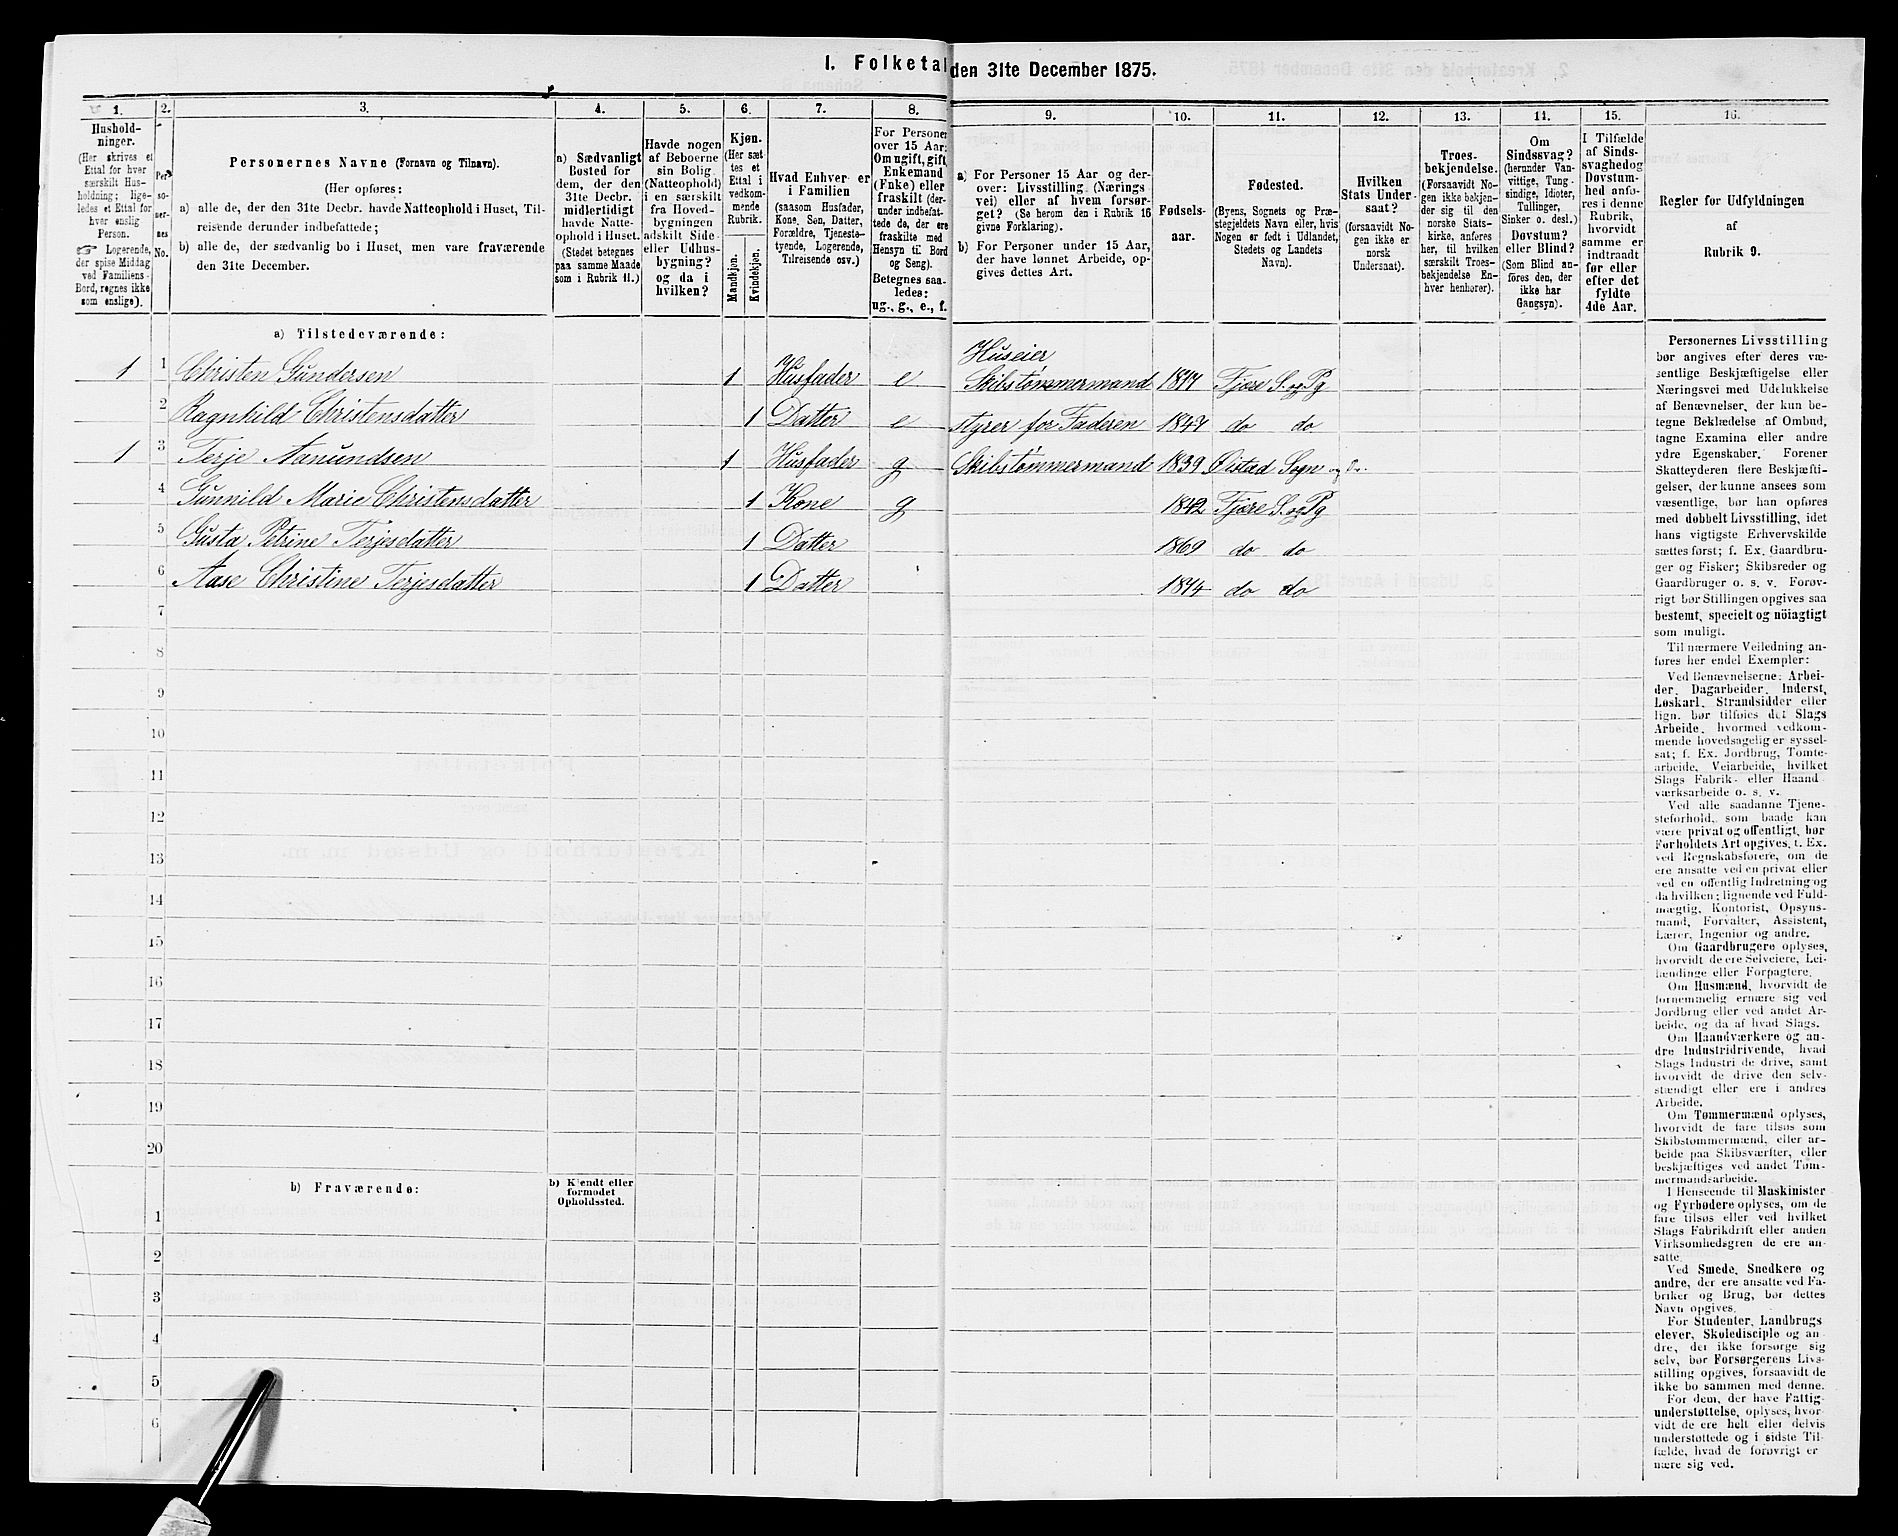 1. Folketal den 31te December 1875.
1. 2. 3. 4. 5. 6. 7. 8. 9. 10. 11. 12. 13. 14. 15. 16.
Hushold-
ninger.
(Her skrives et
Ettal for hver
særskilt Hus-
holdning; lige-
ledes et Ettal for
hver enslig
Person.
☞ Logerende,
der spise Middag
ved Familiens
Bord, regnes ikke
som enslige).
Per-
so-
ner-
nes
No.
Personernes Navne (Fornavn og Tilnavn).
(Her opføres:
a) alle de, der den 31te Decbr. havde Natteophold i Huset, Til-
reisende derunder indbefattede;
b) alle de, der sædvanlig bo i Huset, men vare fraværende
den 31te December.
a) Sædvanligt
Bosted for
dem, der den
31te Decbr.
midlertidigt
havde Natte-
ophold i Huset.
(Stedet betegnes
paa samme Maade
som i Rubrik 11.)
Havde nogen
af Beboerne
sin Bolig
(Natteophold)
i en særskilt
fra Hoved-
bygningen
adskilt Side-
eller Udhus-
bygning?
og da i
hvilken?
Kjøn.
(Her sæt-
tes et
Ettal i
vedkom-
mende
Rubrik.
Mandkjøn.
Kvindekjøn.
Hvad Enhver er
i Familien
(saasom Husfader,
Kone, Søn, Datter,
Forældre, Tjeneste-
tyende, Logerende,
Tilreisende osv.)
For Personer
over 15 Aar:
Om ugift, gift,
Enkemand
(Enke) eller
fraskilt (der-
under indbefat-
tede de, der ere
fraskilte med
Hensyn til Bord
og Seng).
Betegnes saa-
ledes:
ug., g., e., f.
a) For Personer 15 Aar og der-
over: Livsstilling (Nærings
vei) eller af hvem forsør-
get? (Se herom den i Rubrik 16
givne Forklaring).
b) For Personer under 15 Aar,
der have lønnet Arbeide, op-
gives dettes Art.
Fødsels-
aar.
Fødested.
(Byens, Sognets og Præ-
stegjeldets Navn eller, hvis
Nogen er født i Udlandet,
Stedets og Landets
Navn).
Hvilken
Stats Under-
saat?
(forsaavidt No-
gen ikke er
norsk
Undersaat).
Troes-
bekjendelse.
(Forsaavidt No-
gen ikke bekjen-
der sig til den
norske Stats-
kirke, anføres
her, til hvilken
særskilt Troes-
bekjendelse En-
hver henhører).
Om
Sindssvag?
(herunder Van-
vittige, Tung-
sindige, Idioter,
Tullinger,
Sinker o. desl.)
Døvstum?
eller Blind?
(Som Blind an-
føres den, der
ikke har
Gangsyn).
I Tilfælde
af Sinds-
svaghed og
Døvstum-
hed anfø-
res i denne
Rubrik,
hvorvidt
samme er
indtraadt
før eller
efter det
fyldte
4de Aar.
Regler for Udfyldningen
af
Rubrik 9.
a) Tilstedeværende:
Huseier
1 1 Christen Gundersen 1 Husfader e Skibstømmermand 1817 Fjære S. og Pg
2 Ragnhild Christensdatter 1 Datter e styrer for Faderen 1847 do do
1 3 Terje Aanundsen 1 Husfader g Skibstømmermand 1839 Øistad Sogn og Do.
4 Gunnild Marie Christensdatter 1 Kone g 1842 Fjære S. og Pg
5 Gusta Petrine Terjesdatter 1 Datter 1869 do do
6 Aase Christine Terjesdatter 1 Datter 1874 do do
7
8
9
10
11
12
13
14
15
16
17
18
19
20
b) Fraværende:
b) Kjendt eller
formodet
Opholdssted.
1
2
3
4
5
6
Personernes Livsstilling
bør angives efter deres væ-
sentlige Beskjæftigelse eller
Næringsvei med Udelukkelse
af Benævnelser, der kun be-
tegne Beklædelse af Ombud,
tagne Examina eller andre
ydre Egenskaber. Forener
Skatteyderen flere Beskjæfti-
gelser, der kunne ansees som
væsentlige, bør han opføres
med dobbelt Livsstilling, idet
hans vigtigste Erhvervskilde
sættes først; f. Ex. Gaardbru-
ger og Fisker; Skibsreder og
Gaardbruger o. s. v. Forøv-
rigt bør Stillingen opgives saa
bestemt, specielt og nöiagtigt
som muligt.
Til nærmere Veiledning an-
føres her endel Exempler:
Ved Benævnelserne: Arbei-
der, Dagarbeider, Inderst,
Løskarl, Strandsidder eller
lign. bør tilføies det Slags
Arbeide, hvormed vedkom-
mende hovedsagelig er syssel-
sat; f. Ex. Jordbrug, Tomte-
arbeide, Veiarbeide, hvilket
Slags Fabrik- eller Haand-
værksarbeide o. s. v.
Ved alle saadanne Tjene-
steforhold, som baade kan
være privat og offentligt, bør
Forholdets Art opgives, f. Ex.
ved Regnskabsførere, om de
ere ansatte ved en privat eller
ved en offentlig Indretning og
da hvilken; lignende ved Fuld-
mægtig, Kontorist, Opsyns-
mand, Forvalter, Assistent,
Lærer, Ingeniør og andre.
Om Gaardbrugere oplyses,
hvorvidt de ere Selveiere, Lei-
lændinge eller Forpagtere.
Om Husmænd, hvorvidt de
fornemmelig ernære sig ved
Jordbrug eller ved andet Ar-
beide, og da af hvad Slags.
Om Haandværkere og an-
dre Industridrivende, hvad
Slags Industri de drive, samt
hvorvidt de drive den selv-
stændigt eller ere i andres
Arbeide.
Om Tømmermænd oplyses,
hvorvidt de fare tilsøs som
Skibstømmermænd, eller ar-
beide paa Skibsværfter, eller
beskjæftiges ved andet Tøm-
mermandsarbeide.
I Henseende til Maskinister
og Fyrbødere oplyses, om de
fare tilsøs eller ved hvilket
Slags Fabrikdrift eller anden
Virksomhedsgren de ere an-
satte.
Ved Smede, Snedkere og
andre, der ere ansatte ved Fa-
briker og Brug, bør dettes
Navn opgives.
For Studenter, Landbrugs
elever, Skoledisciple og an-
dre, der ikke forsørge sig
selv, bør Forsørgerens Livs-
stilling opgives, forsaavidt de
ikke bo sammen med denne.
For dem, der have Fattig-
understøttelse, oplyses, hvor-
vidt de ere helt eller delvis
understøttede og i sidste Til-
fælde, hvad de forøvrigt er-
nære sig ved.